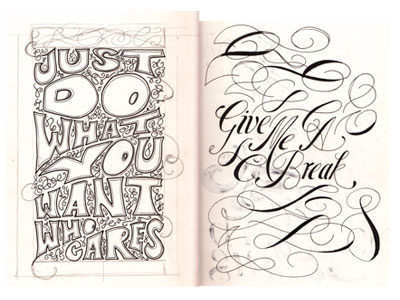 JUST
DO
WHAT
YOU
WANT
WHO
CARES
Give Me A
Break